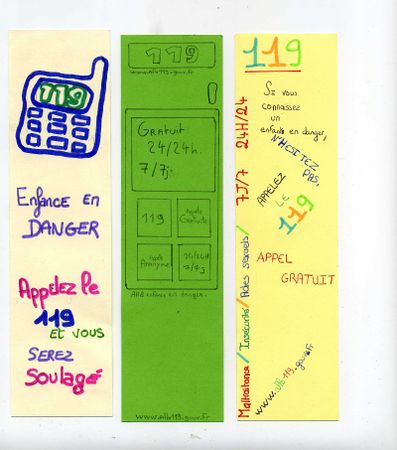 119
Enfance en
DANGER
Appelez le
119
Et vous
SEREZ
Soulagé
119
www.allo119.gouv.fr
GRATUIT
24/24h.
7/7j.
119
Appel
Gratuit
Appel
Anonyme
24/24H
7/7j
Allo enfance en danger.
www.allo119.gouv.fr
119
Si vous
connaissez
un
enfants en danger,
N'HÉSITEZ
PAS,
APPELEZ
LE
119
APPEL
GRATUIT
www.allo119.gouv.fr
Maltraitance / Insécurité / Actes sexuels / 7J/7 24H/24